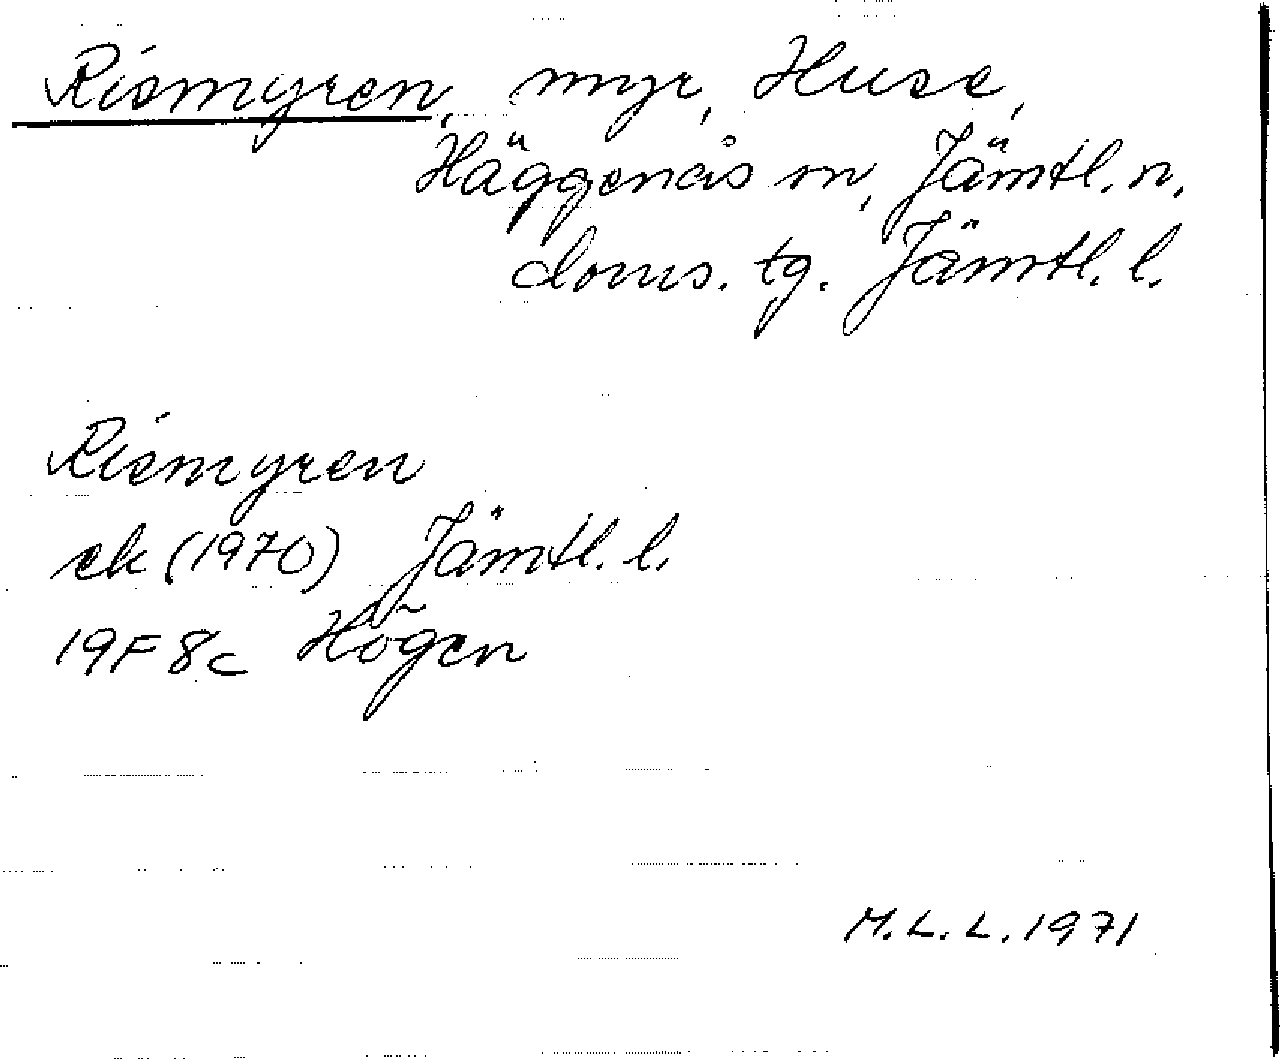 Rismyren, myr, Huse,
Häggenås sn, Jämtl. n.
doms. tg. Jämtl. l.
Rismyren
ek (1970) Jämtl. l.
19F 8c Högen
M.L.L. 1971